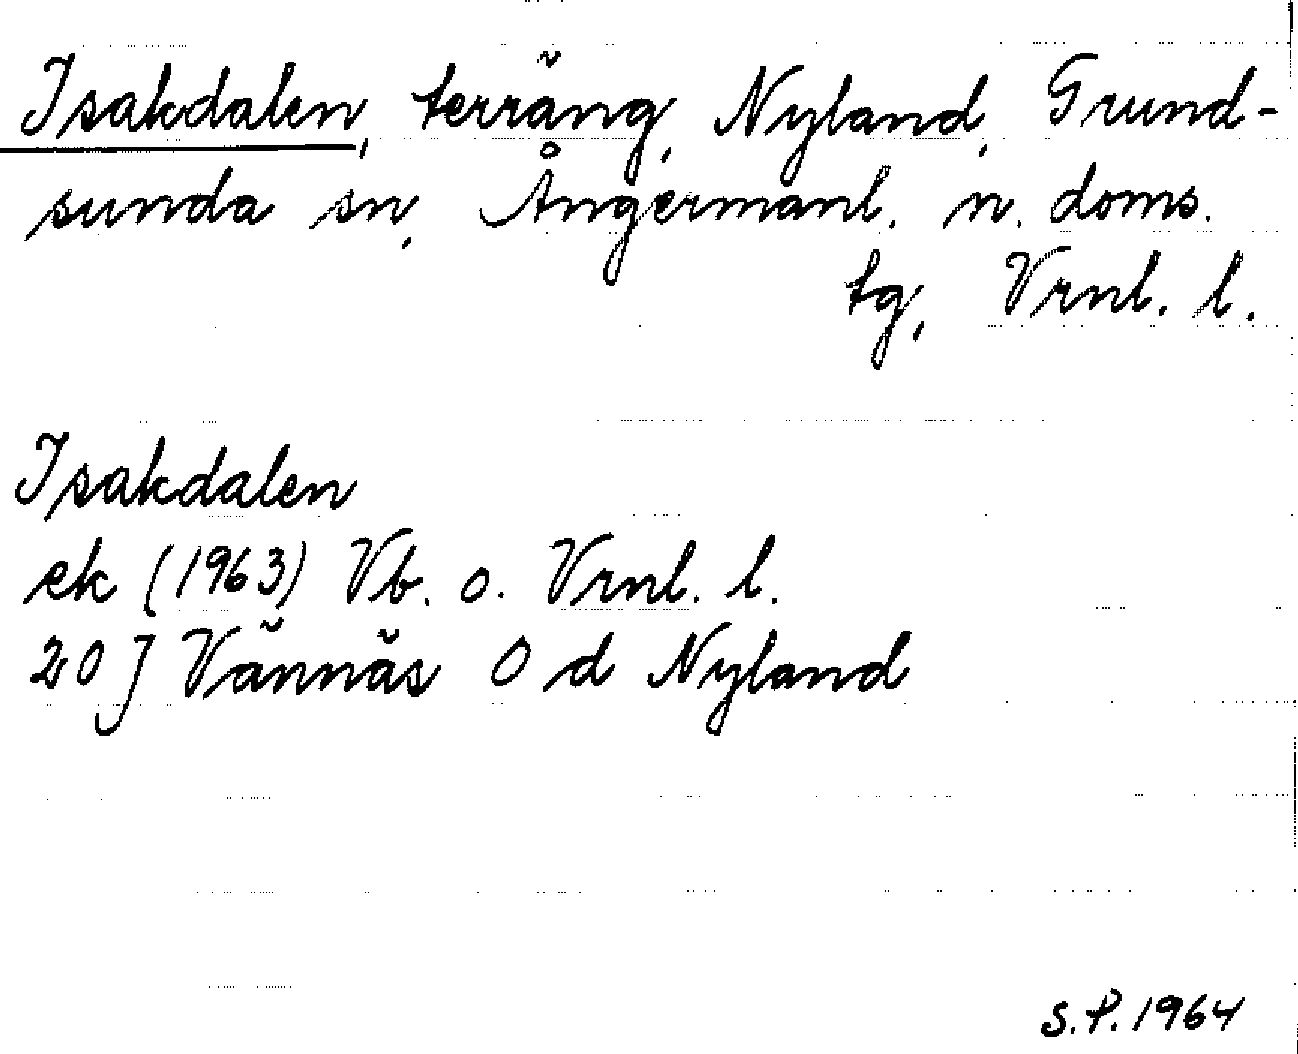 Isakdalen, terräng, Nyland, Grund-
sunda sn, Ångermanl. n. doms.
tg, Vrnl. l.
Isakdalen
ek (1963) Vb. o. Vrnl. l.
20 J Vännäs 0 d Nyland
S.P. 1964